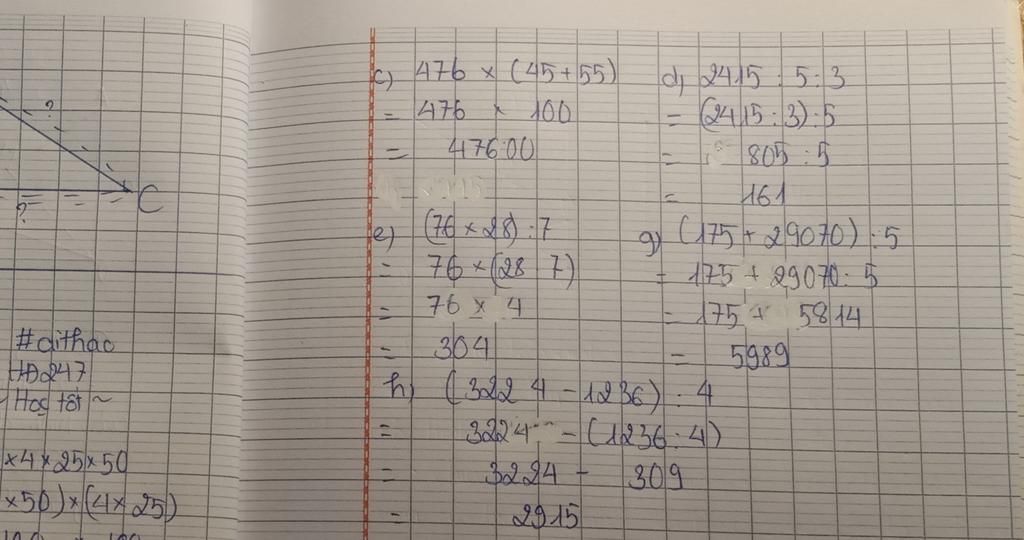 ?
C
?
#dithao
HD247
Học tốt ~
×4×25×50
×50)×(4×25)
c) 476 × (45+55)
= 476 × 100
= 47600
d) 2415 : 5 : 3
= (2415 : 3) : 5
= 805 : 5
= 161
e) (76 × 28) : 7
= 76 × (28 7)
= 76 × 4
= 304
g) (175 + 29070) : 5
= 175 + 29070 : 5
= 175 + 5814
= 5989
h) (3224 - 1236) : 4
= 3224 - (1236 : 4)
= 3224 - 309
= 2915